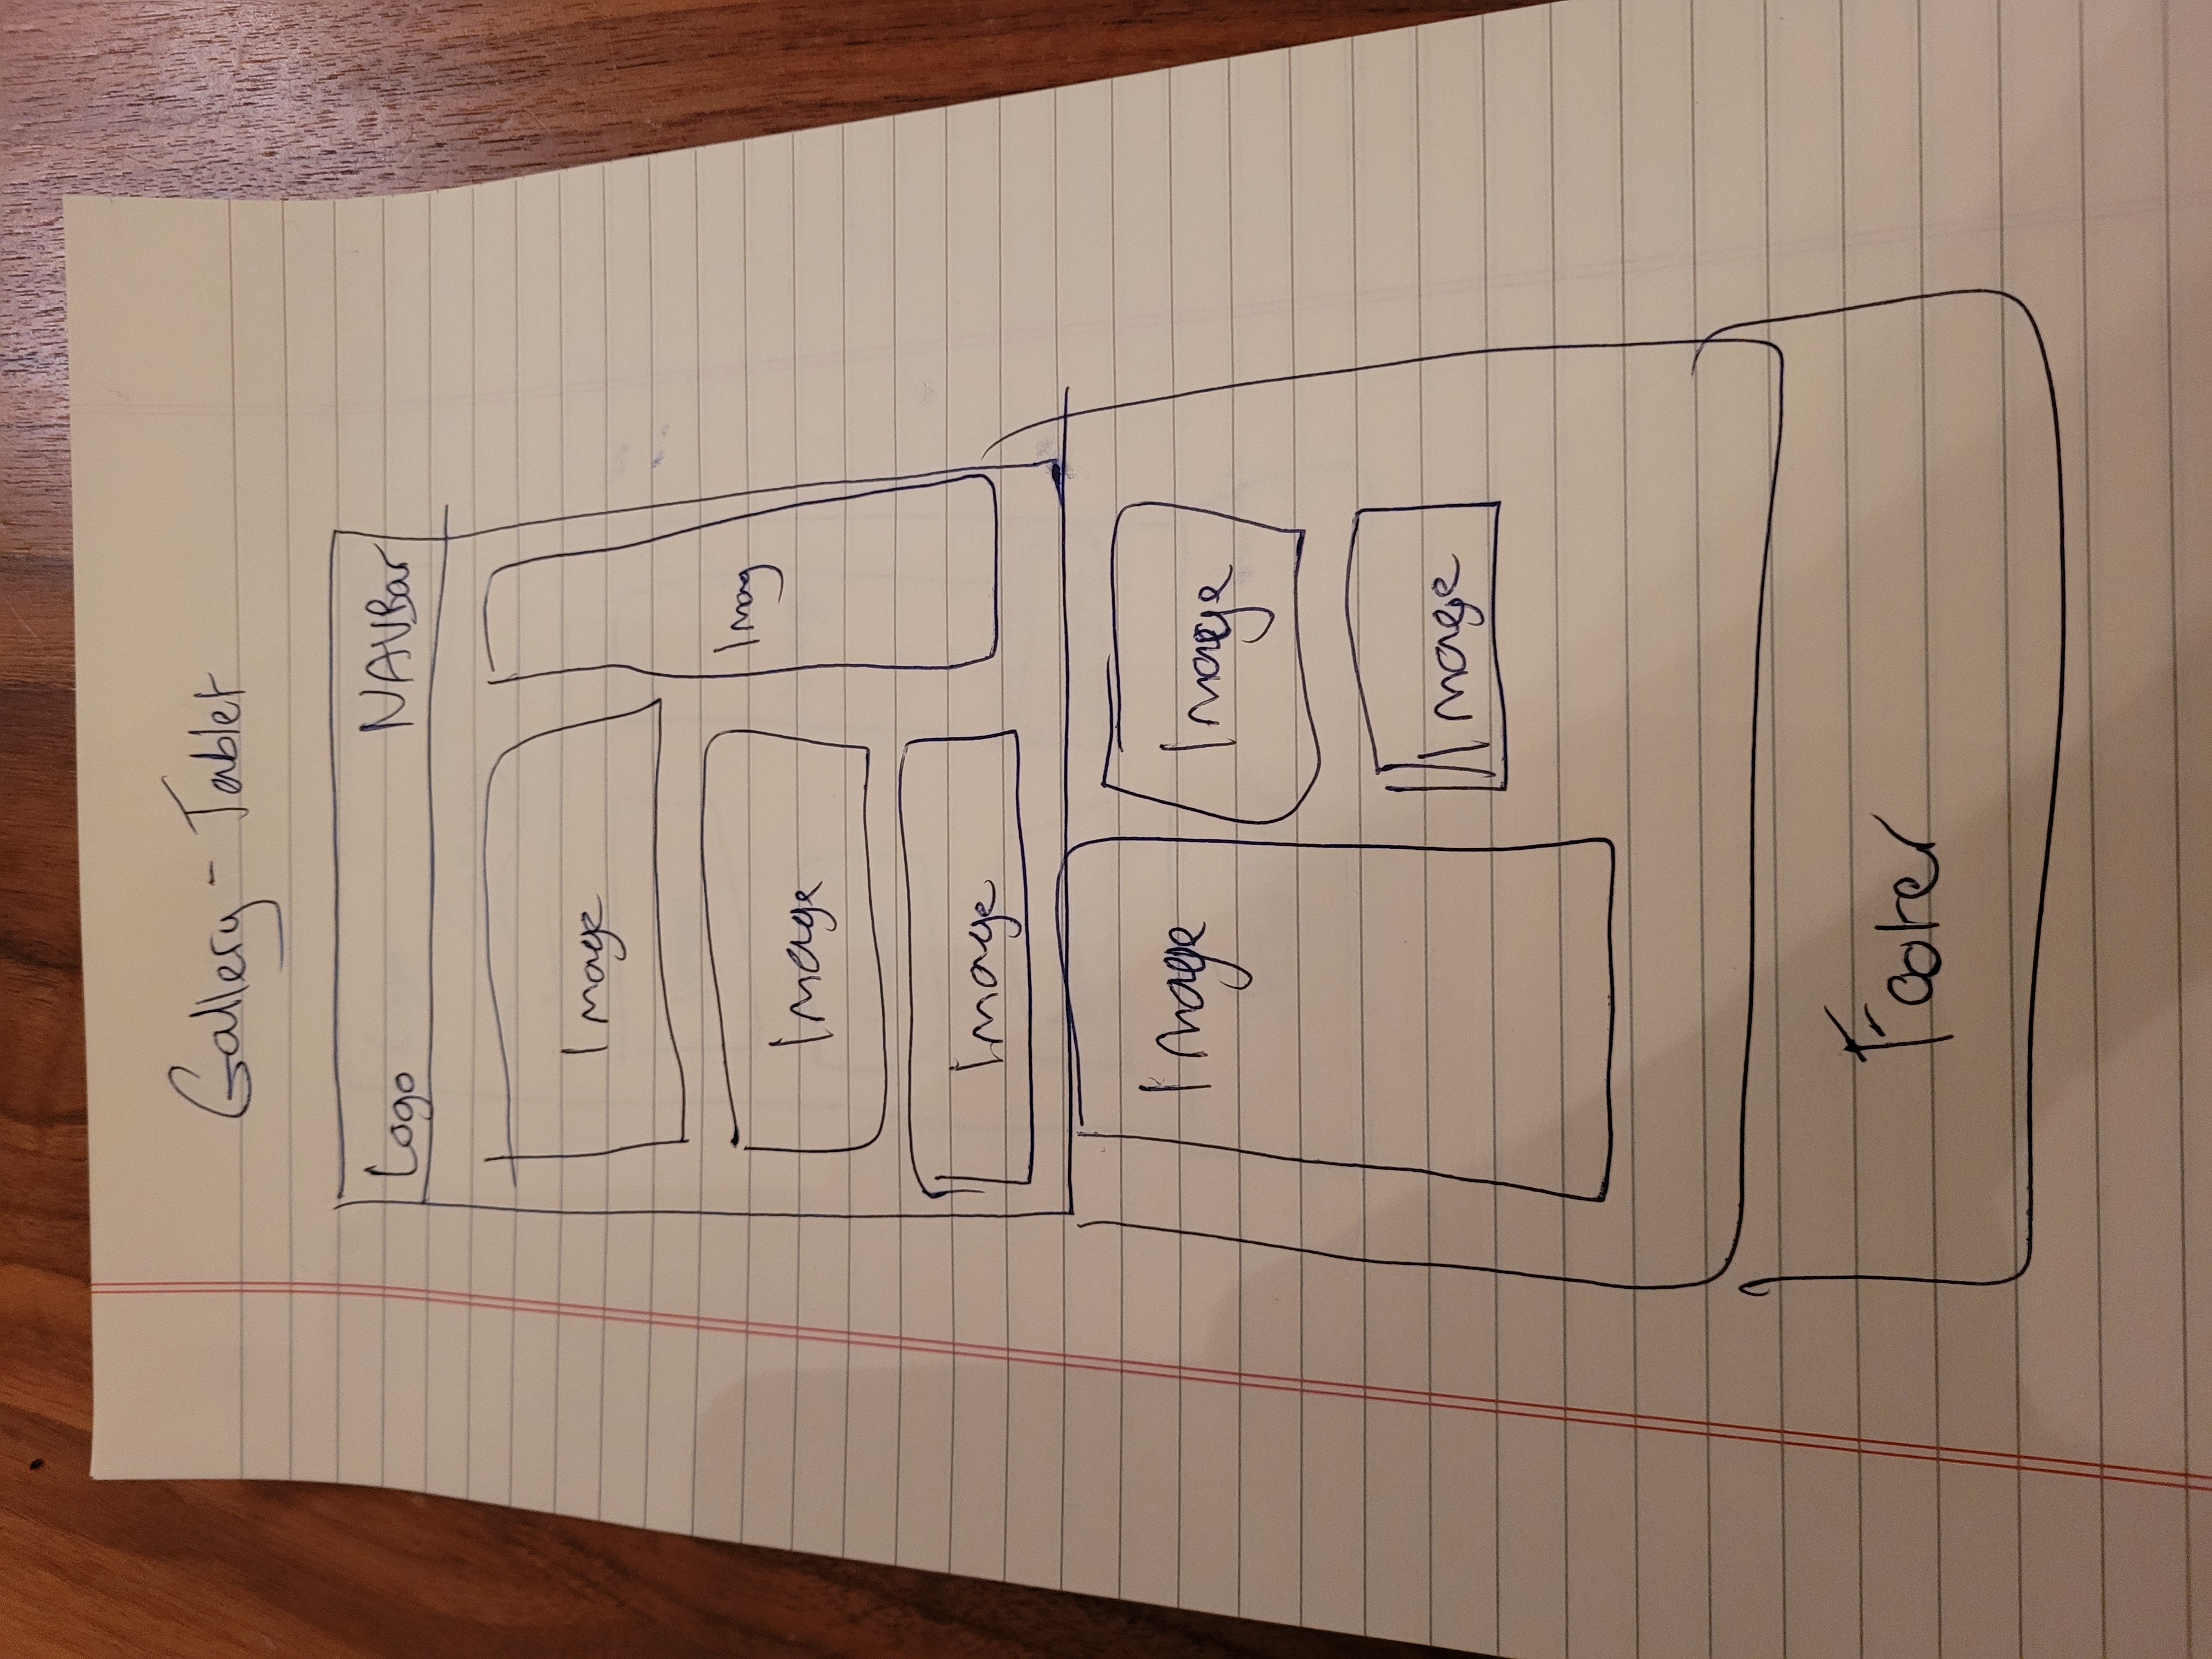 Gallery - Tablet
Logo NAVBar
Image
Imag
Image
Image
Image
Image
Image
Footer